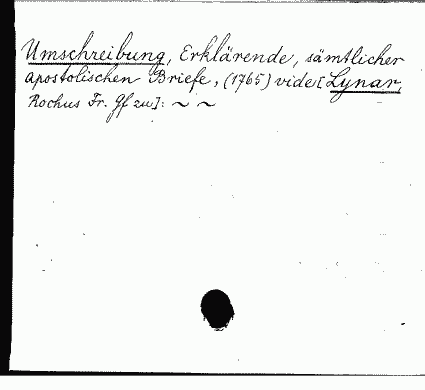 Umschreibung, Erklärende, sämtlicher
apostolischen Briefe, (1765) vide [Lynar,
Rochus Fr. Gf zu]: ~ ~